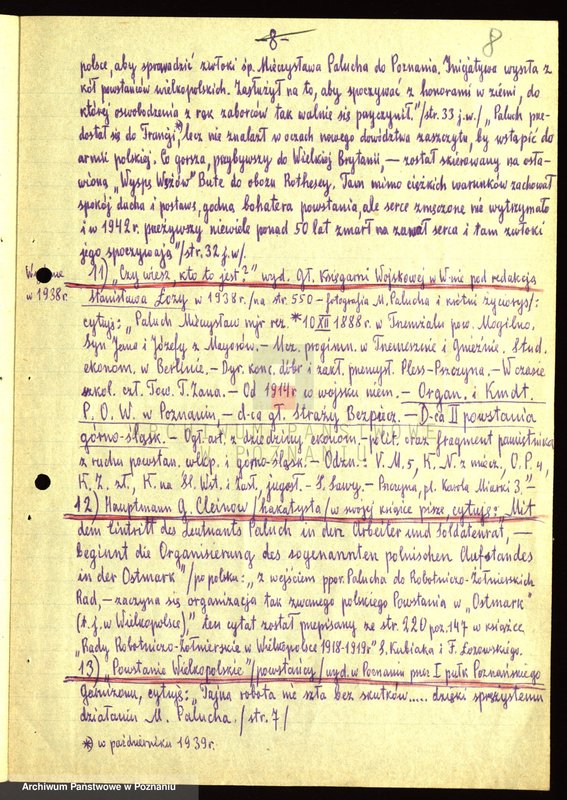 - 8 -
8
polsce, aby sprowadzić zwłoki śp. Mieczysława Palucha do Poznania. Inicjatywa wyszła z
kół powstańców wielkopolskich. Zasłużył na to, aby spoczywać z honorami w ziemi, do
której oswobodzenia z rąk zaborców tak walnie się przyczynił."/str. 33 j.w./ „Paluch prze-
dostał się do Francji,*) lecz nie znalazł w oczach nowego dowództwa zaszczytu, by wstąpić do
armii polskiej. Co gorsza, przybywszy do Wielkiej Brytanii, — został skierowany na osła-
wioną „Wyspę Wężów" Bute do obozu Rothesey. Tam mimo ciężkich warunków zachował
spokój ducha i postawę, godną bohatera powstania, ale serce zmęczone nie wytrzymało
i w 1942 r. przeżywszy niewiele ponad 50 lat zmarł na zawał serca i tam zwłoki
jego spoczywają"/str. 32 j.w/.
11) „Czy wiesz, kto to jest?" wyd. Gł. Księgarni Wojskowej w W-wie pod redakcją
w 1938 r.
Stanisława Łozy w 1938 r. /na str. 550 - fotografia M. Palucha i krótki życiorys/:
cytuję: „Paluch Mieczysław mjr rez. *10 XII 1888 r. w Trzemżalu pow. Mogilno.
Syn Jana i Józefy z Mayerów. - Ucz. progimn. w Trzemesznie i Gnieźnie. Stud.
ekonom. w Berlinie. - Dyr. konc. dóbr i zakł. przemysł. Pless-Pszczyna. - W czasie
szkol. czł. Tow. T. Zana. - Od 1914 r. w wojsku niem. - Organ. i Kmdt.
P. O. W. w Poznaniu, - d-ca gł. Straży Bezpiecz. - D-ca II powstania
górno-śląsk. - Ogł. art. z dziedziny ekonom. - polit. oraz fragment pamiętnika
z ruchu powstań. wlkp. i górno-śląsk. - Odzn.: V. M. 5, K. N. z miecz., O. P. 4,
K. Z. zł., K. na Śl. Wst. i Zasł. jugosł. - S. Sawy. - Pszczyna, pl. Karola Miarki 3" -
12) Hauptmann G. Cleinow /hakatysta/ w swojej książce pisze, cytuję: „Mit
dem Eintritt des Leutnants Paluch in den Arbeiter und Soldatenrat, —
beginnt die Organisierung des sogenannten polnischen Aufstandes
in der Ostmark"/po polsku: „z wejściem ppor. Palucha do Robotniczo-Żołnierskich
Rad, - zaczyna się organizacja tak zwanego polskiego Powstania w „Ostmark"
(t. j. w Wielkopolsce)," ten cytat został przepisany ze str. 220 poz. 147 w książce
„Rady Robotniczo-Żołnierskie w Wielkopolsce 1918-1919r." S. Kubiaka i F. Łozowskiego.
13) „Powstanie Wielkopolskie"/powstańcy/ wyd. w Poznaniu przez I pułk Poznańskiego
Garnizonu, cytuję: „Tajna robota nie szła bez skutków..... dzięki sprężystemu
działaniu M. Palucha. /str. 7/
*) w październiku 1939 r.
ARCHIWUM PAŃSTWOWE
W POZNANIU
Archiwum Państwowe w Poznaniu